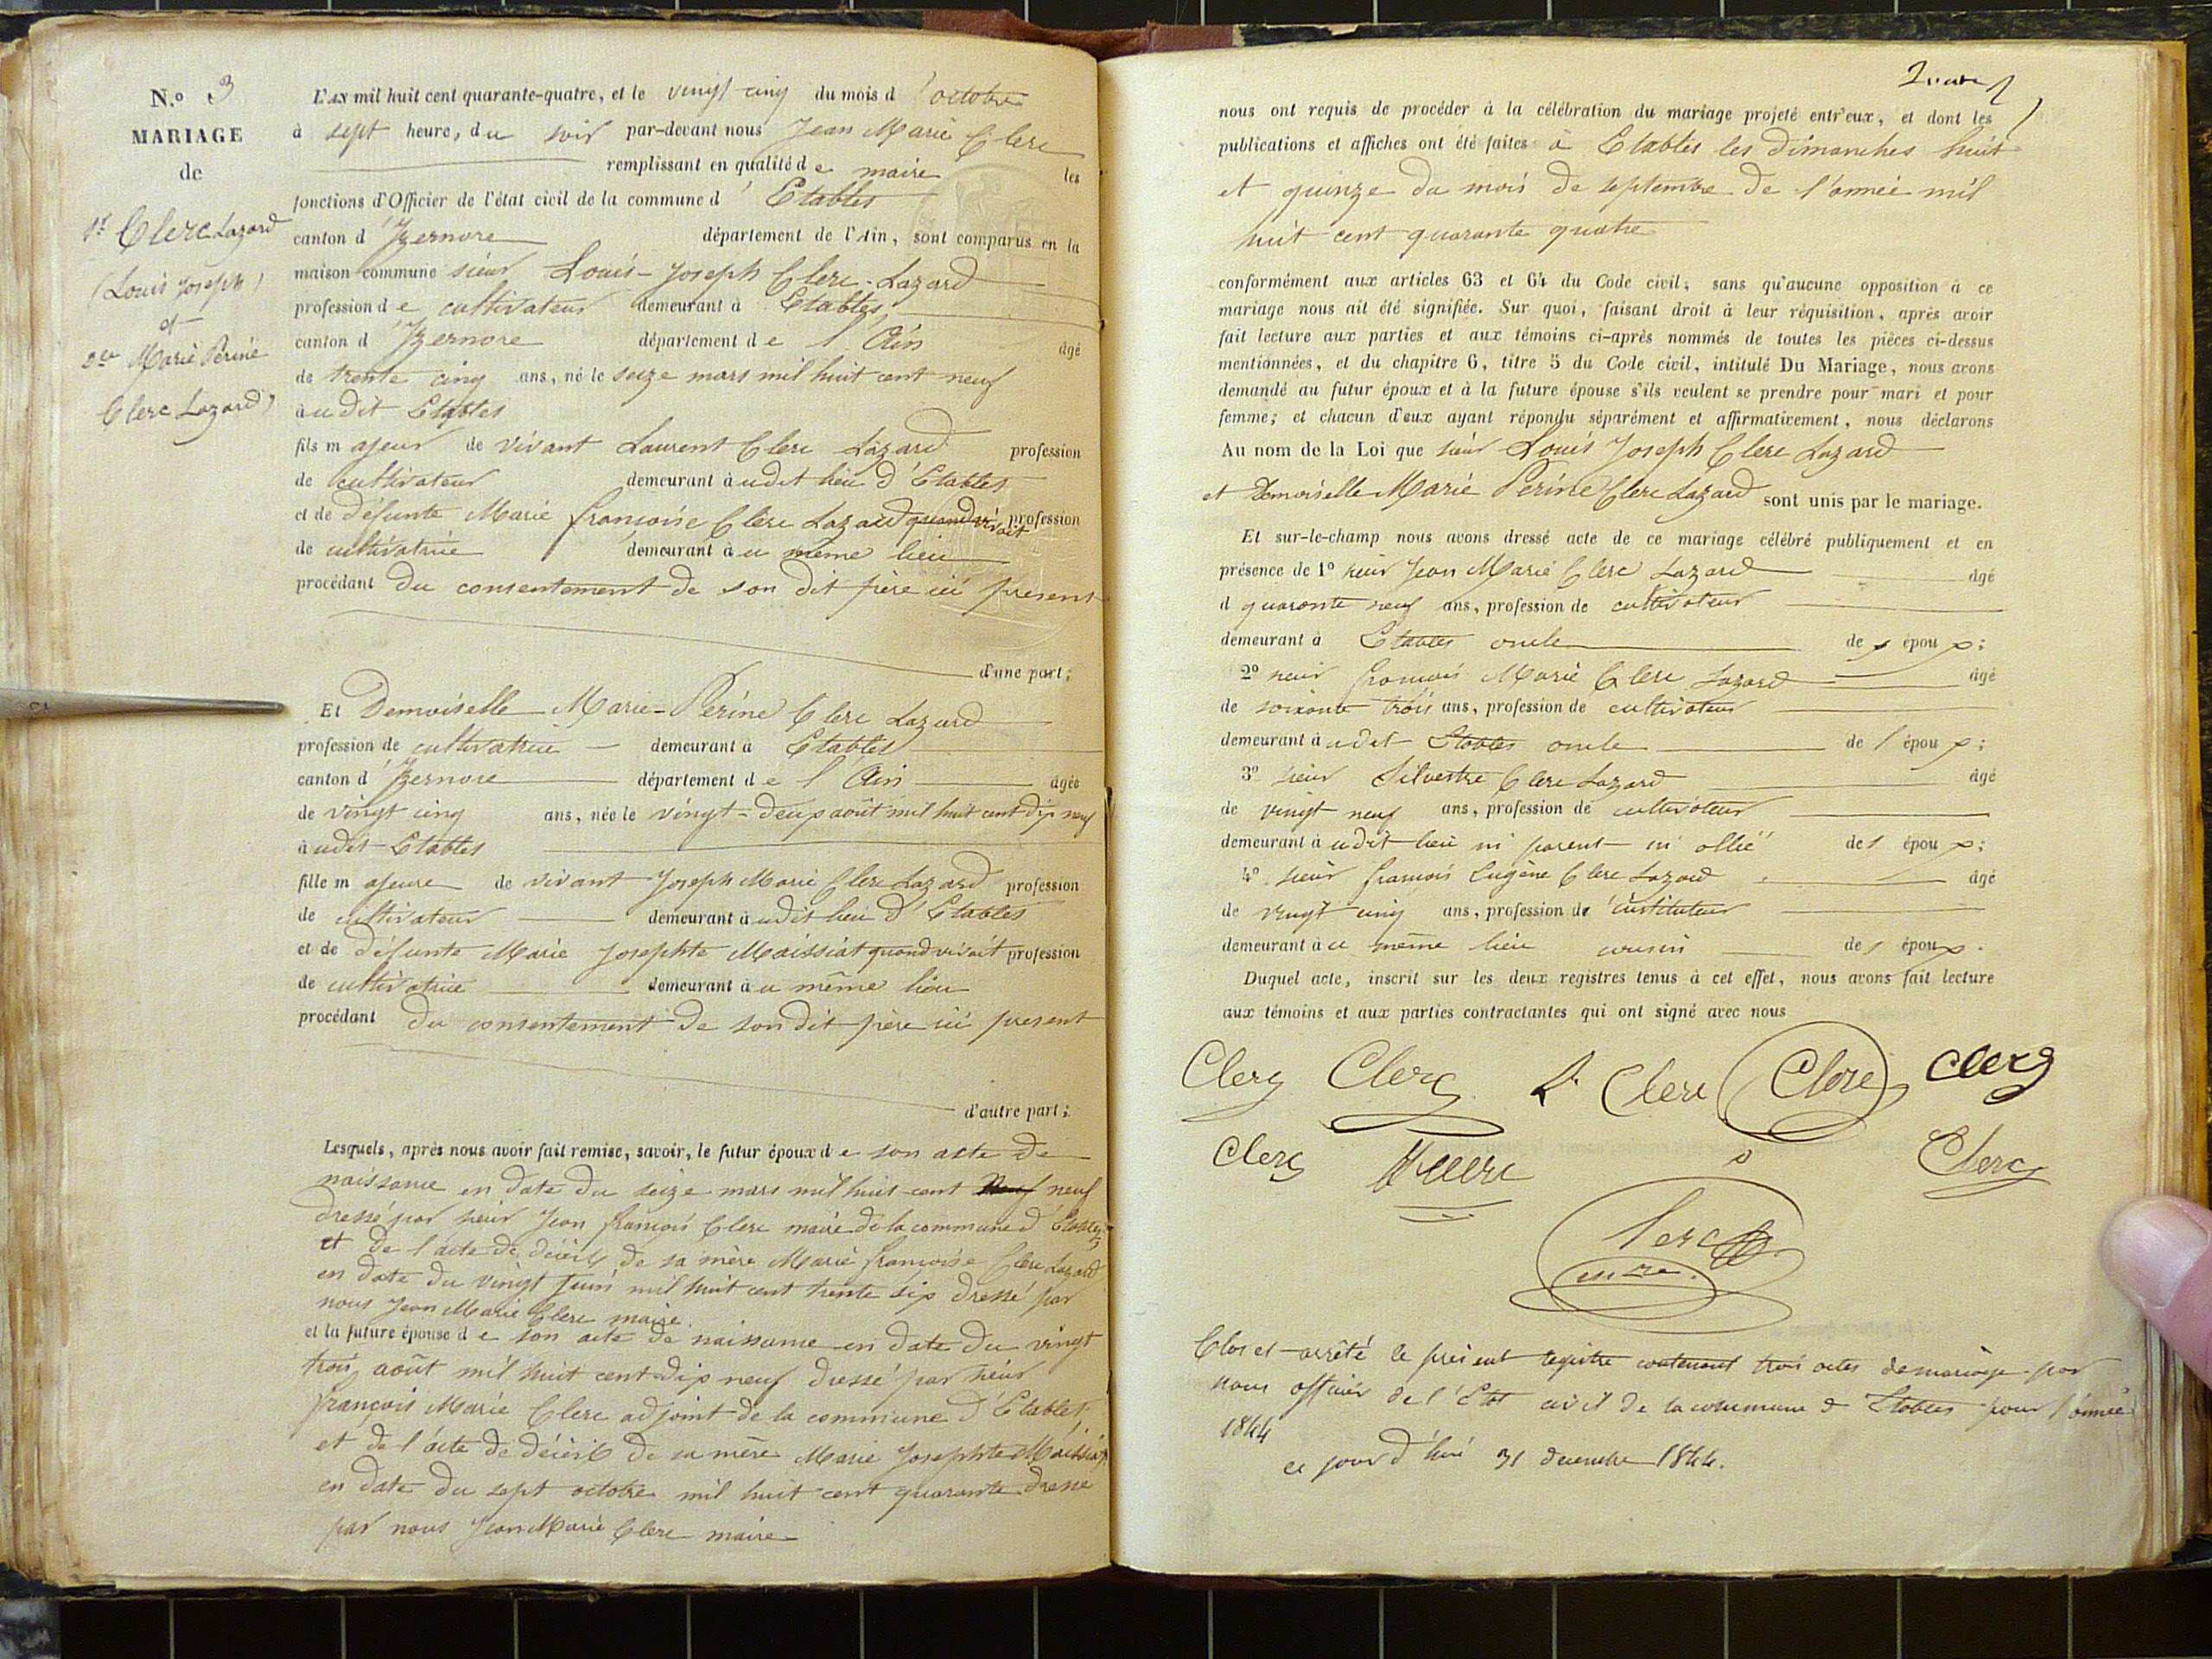 N.º 3
MARIAGE
de
1º Clerc Lazard
(Louis Joseph)
et
2º Marie Périne
Clerc Lazard
L'AN mil huit cent quarante-quatre, et le vingt cinq du mois d'octobre
à sept heure, du soir par-devant nous Jean Marie Clerc
remplissant en qualité de maire les
fonctions d'Officier de l'état civil de la commune d'Etables
canton d'Izernore département de l'Ain, sont comparus en la
maison commune sieur Louis-Joseph Clerc-Lazard
profession de cultivateur demeurant à Etables
canton d'Izernore département de l'Ain âgé
de trente cinq ans, né le seize mars mil huit cent neuf
à udit Etables
fils majeur de vivant Laurent Clerc Lazard profession
de cultivateur demeurant à udit lieu d'Etables
et de défunte Marie françoise Clerc Lazard quand vivait profession
de cultivatrice demeurant à u même lieu
procédant du consentement de son dit père ici présent
d'une part;
Et Demoiselle Marie-Périne Clerc Lazard
profession de cultivatrice demeurant à Etables
canton d'Izernore département de l'Ain âgée
de vingt cinq ans, née le vingt-deux août mil huit cent dix neuf
à udit Etables
fille majeure de vivant Joseph Marie Clerc Lazard profession
de cultivateur demeurant à udit lieu d'Etables
et de défunte Marie Josephte Maissiat quand vivait profession
de cultivatrice demeurant à u même lieu
procédant du consentement de son dit père ici présent
d'autre part;
Lesquels, après nous avoir fait remise, savoir, le futur époux de son acte de
naissance en date du seize mars mil huit cent neuf
dressé par sieur Jean françois Clerc maire de la commune d'Etables
et de l'acte de décès de sa mère Marie françoise Clerc Lazard
en date du vingt Juin mil huit cent trente six dressé par
nous Jean Marie Clerc maire.
et la future épouse de son acte de naissance en date du vingt
trois août mil huit cent dix neuf dressé par sieur
françois Marie Clerc adjoint de la commune d'Etables,
et de l'acte de décès de sa mère Marie Josephte Maissiat
en date du sept octobre mil huit cent quarante dressé
par nous Jean Marie Clerc maire
nous ont requis de procéder à la célébration du mariage projeté entr'eux, et dont les
publications et affiches ont été faites à Etables les dimanches huit
et quinze du mois de septembre de l'année mil
huit cent quarante quatre
conformément aux articles 63 et 64 du Code civil; sans qu'aucune opposition à ce
mariage nous ait été signifiée. Sur quoi, faisant droit à leur réquisition, après avoir
fait lecture aux parties et aux témoins ci-après nommés de toutes les pièces ci-dessus
mentionnées, et du chapitre 6, titre 5 du Code civil, intitulé Du Mariage, nous avons
demandé au futur époux et à la future épouse s'ils veulent se prendre pour mari et pour
femme; et chacun d'eux ayant répondu séparément et affirmativement, nous déclarons
Au nom de la Loi que sieur Louis Joseph Clerc Lazard
et Demoiselle Marie Périne Clerc Lazard sont unis par le mariage.
Et sur-le-champ nous avons dressé acte de ce mariage célébré publiquement et en
présence de 1º sieur Jean Marie Clerc Lazard âgé
d quarante neuf ans, profession de cultivateur
demeurant à Etables oncle de l'époux;
2º sieur françois Marie Clerc Lazard âgé
de soixante trois ans, profession de cultivateur
demeurant à udit Etables oncle de l'époux;
3º sieur Silvestre Clerc Lazard âgé
de vingt neuf ans, profession de cultivateur
demeurant à udit lieu ni parent ni allié des époux;
4º sieur françois Eugène Clerc Lazard âgé
de vingt cinq ans, profession de instituteur
demeurant à u même lieu cousin des époux.
Duquel acte, inscrit sur les deux registres tenus à cet effet, nous avons fait lecture
aux témoins et aux parties contractantes qui ont signé avec nous
Clerc Clerc L. Clerc Clerc Clerc
Clerc Clerc
Clerc
Clos et arrêté le présent registre contenant trois actes de mariage par
nous officier de l'Etat civil de la commune d'Etables pour l'année
1844
ce jour d'hui 31 décembre 1844.